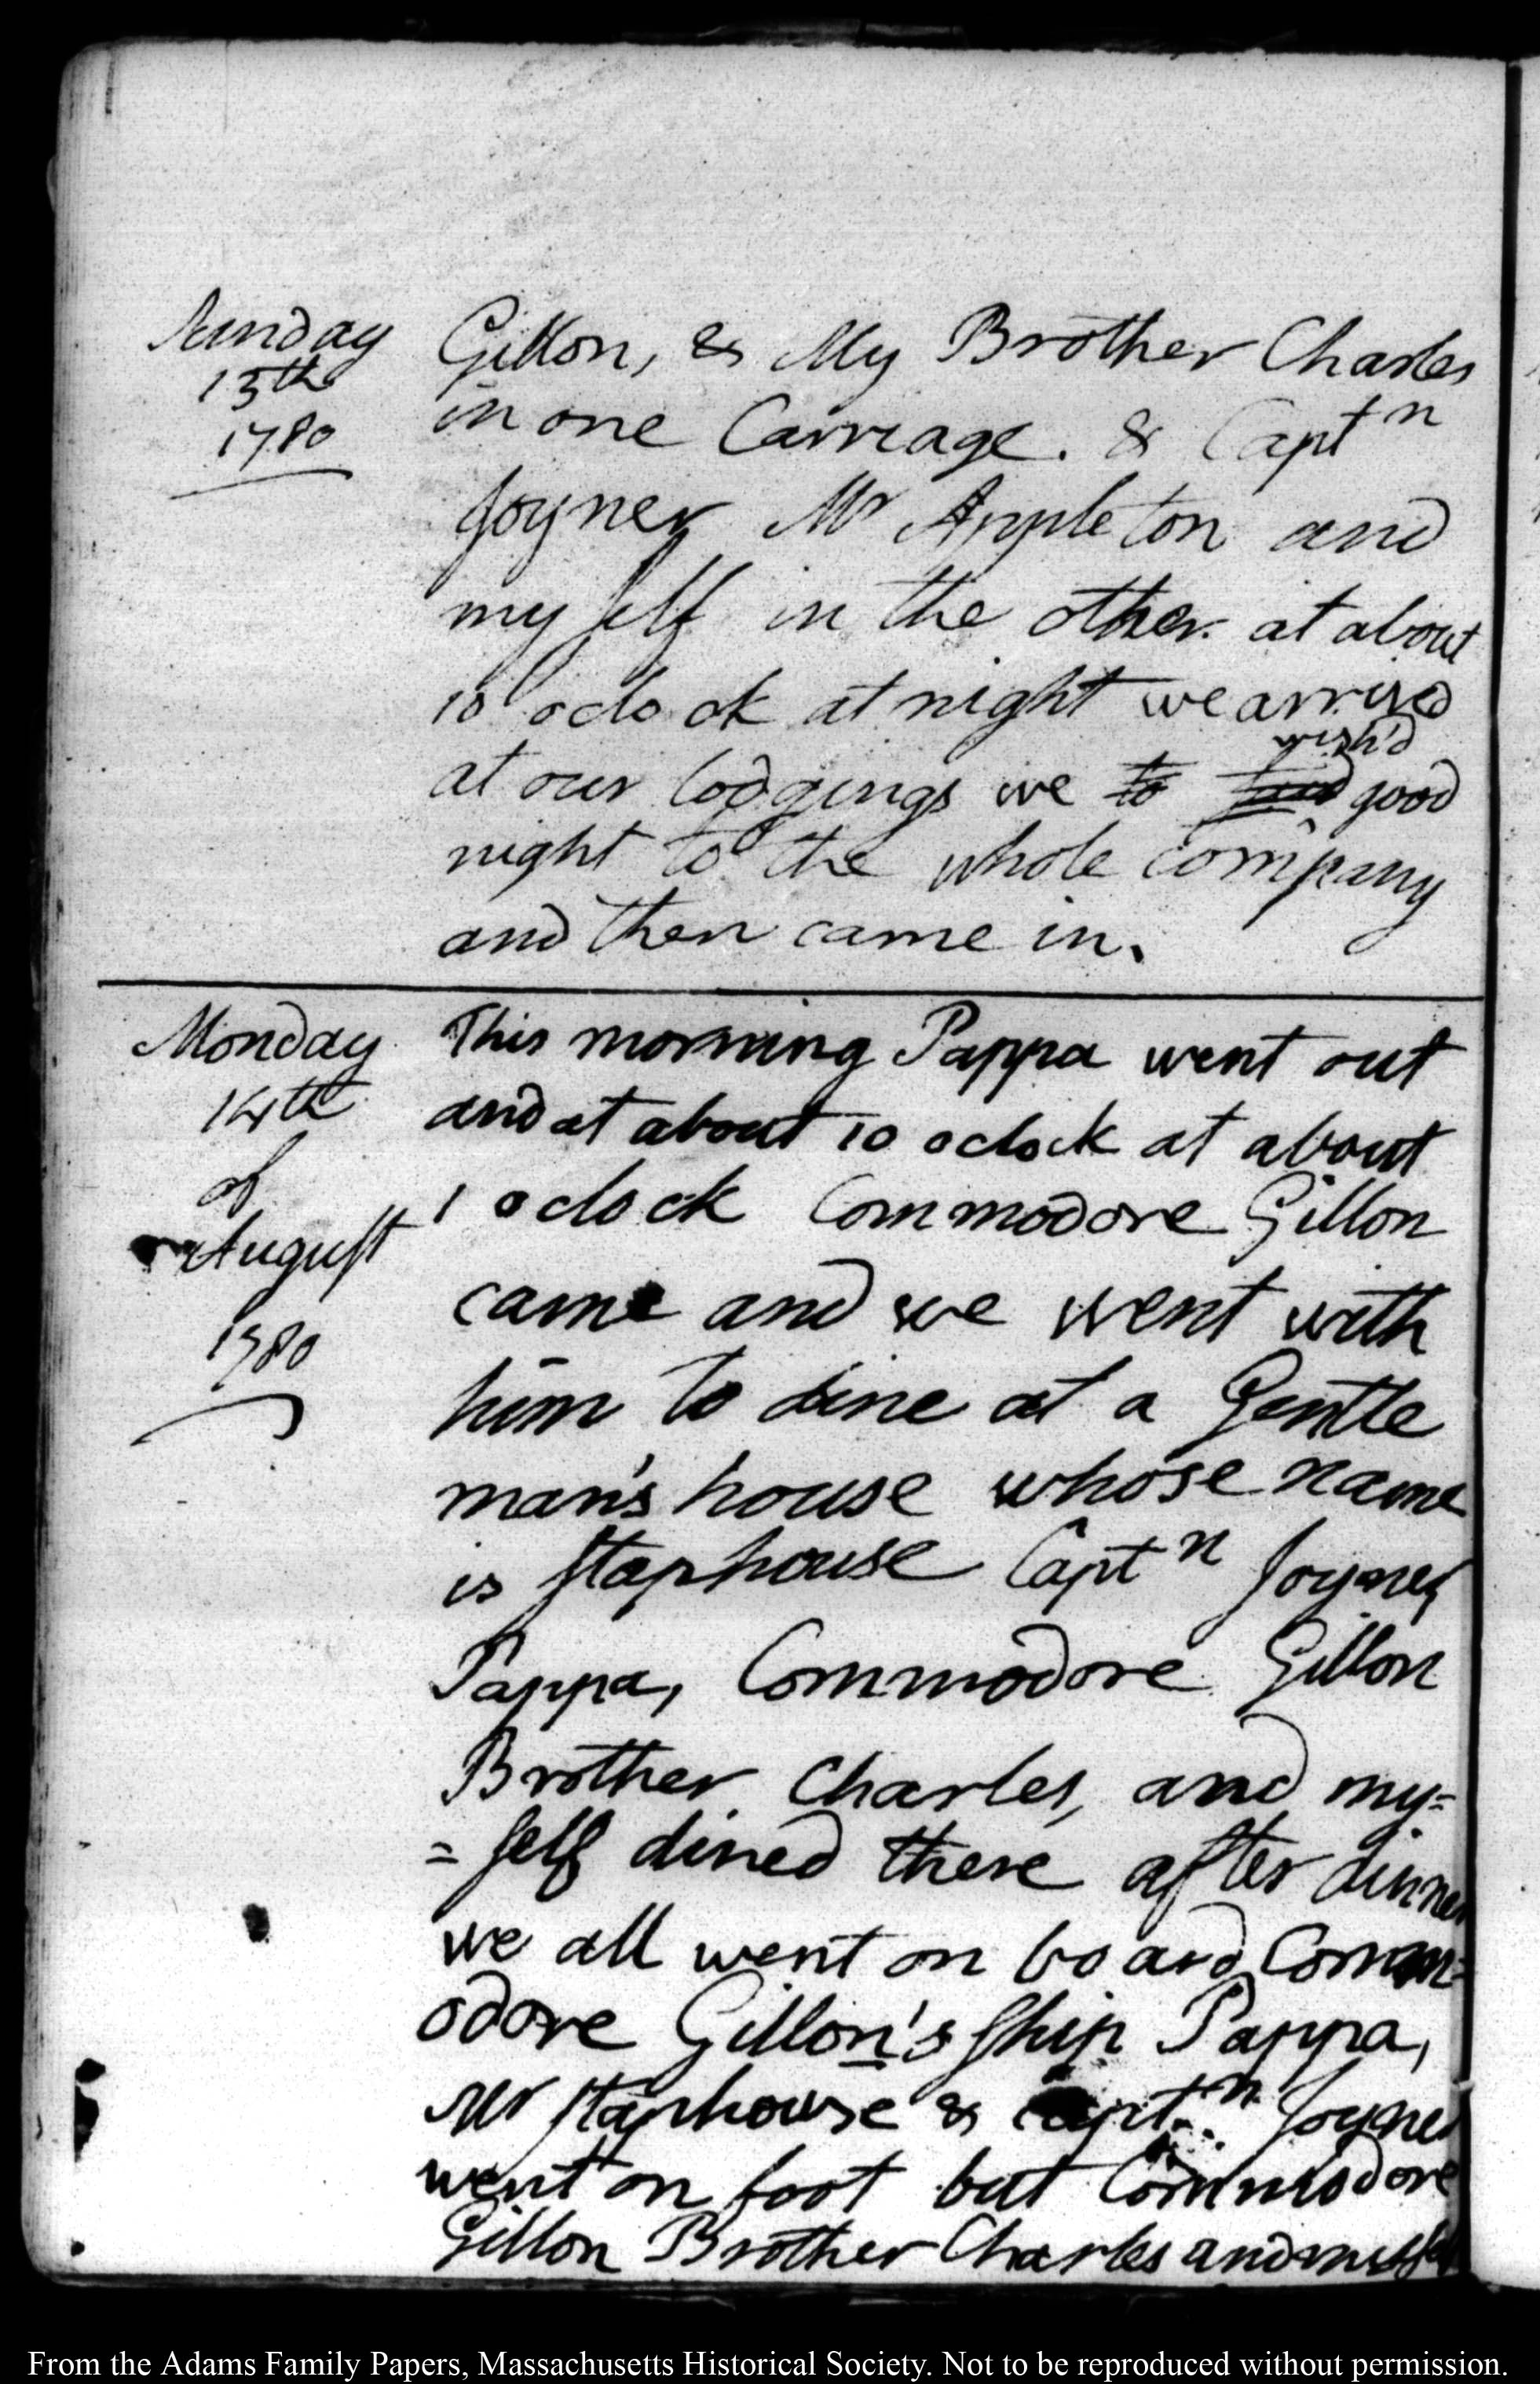 Sunday
13th
1780
Gillon, & My Brother Charles
in one Carriage. & Captn
Joyner Mr Appleton and
my self in the other. at about
10 oclock at night we arrived
at our lodgings we to wish'd good
night to the whole company
and then came in.
Monday
14th
of
August
1780
This morning Pappa went out
and at about 10 oclock at about
1 oclock Commodore Gillon
came and we went with
him to dine at a Gentle
man's house whose name
is Staphouse Captn Joyner
Pappa, Commodore Gillon
Brother Charles, and my=
=self dined there after dinner
we all went on board Comm=
odore Gillon's Ship Pappa,
Mr Staphouse & Captn Joyner
went on foot but Commodore
Gillon Brother Charles and myself
From the Adams Family Papers, Massachusetts Historical Society. Not to be reproduced without permission.